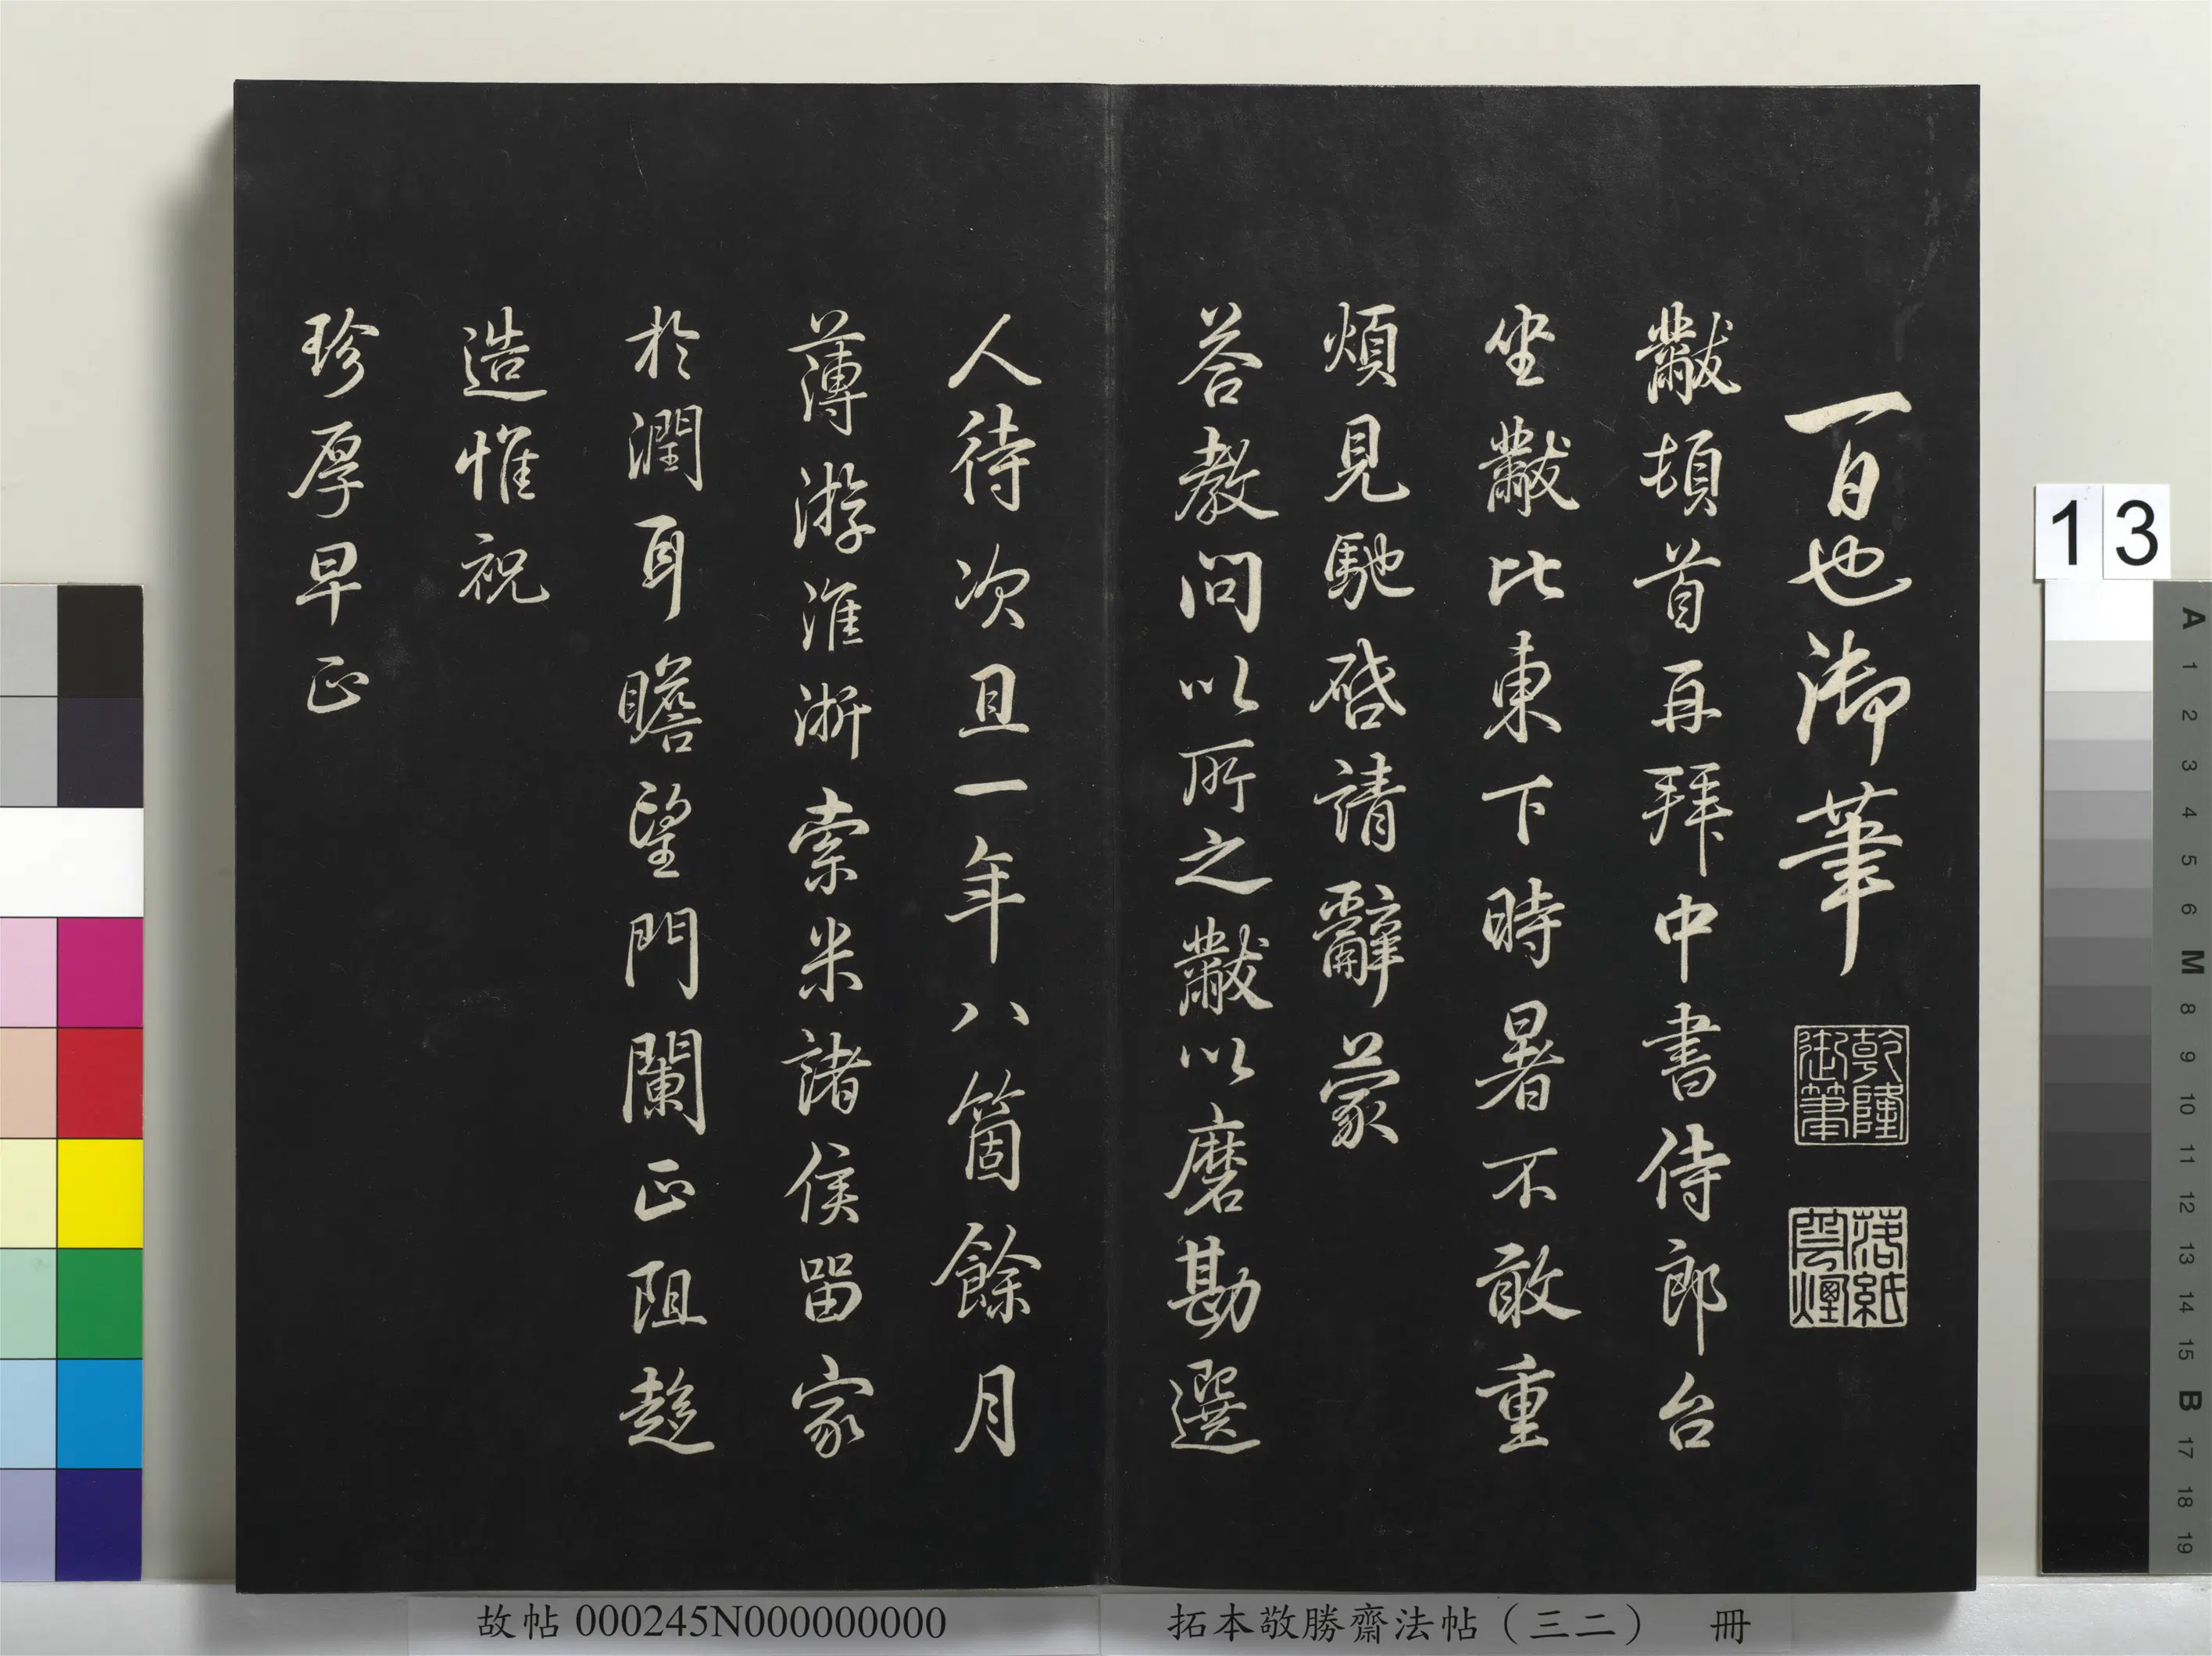 一日也御筆
乾隆御筆
落紙雲煙
黻頓首再拜中書侍郎台
坐黻比東下時暑不敢重
煩見馳啓請辭蒙
荅教問以所之黻以磨勘選
人待次且一年八箇餘月
薄游淮浙索米諸侯留家
於潤耳瞻望門闌正阻趍
造惟祝
珍厚早正
13
A
1
2
3
4
5
6
M
8
9
10
11
12
13
14
15
B
17
18
19
故帖 000245N000000000
拓本敬勝齋法帖（三二） 冊